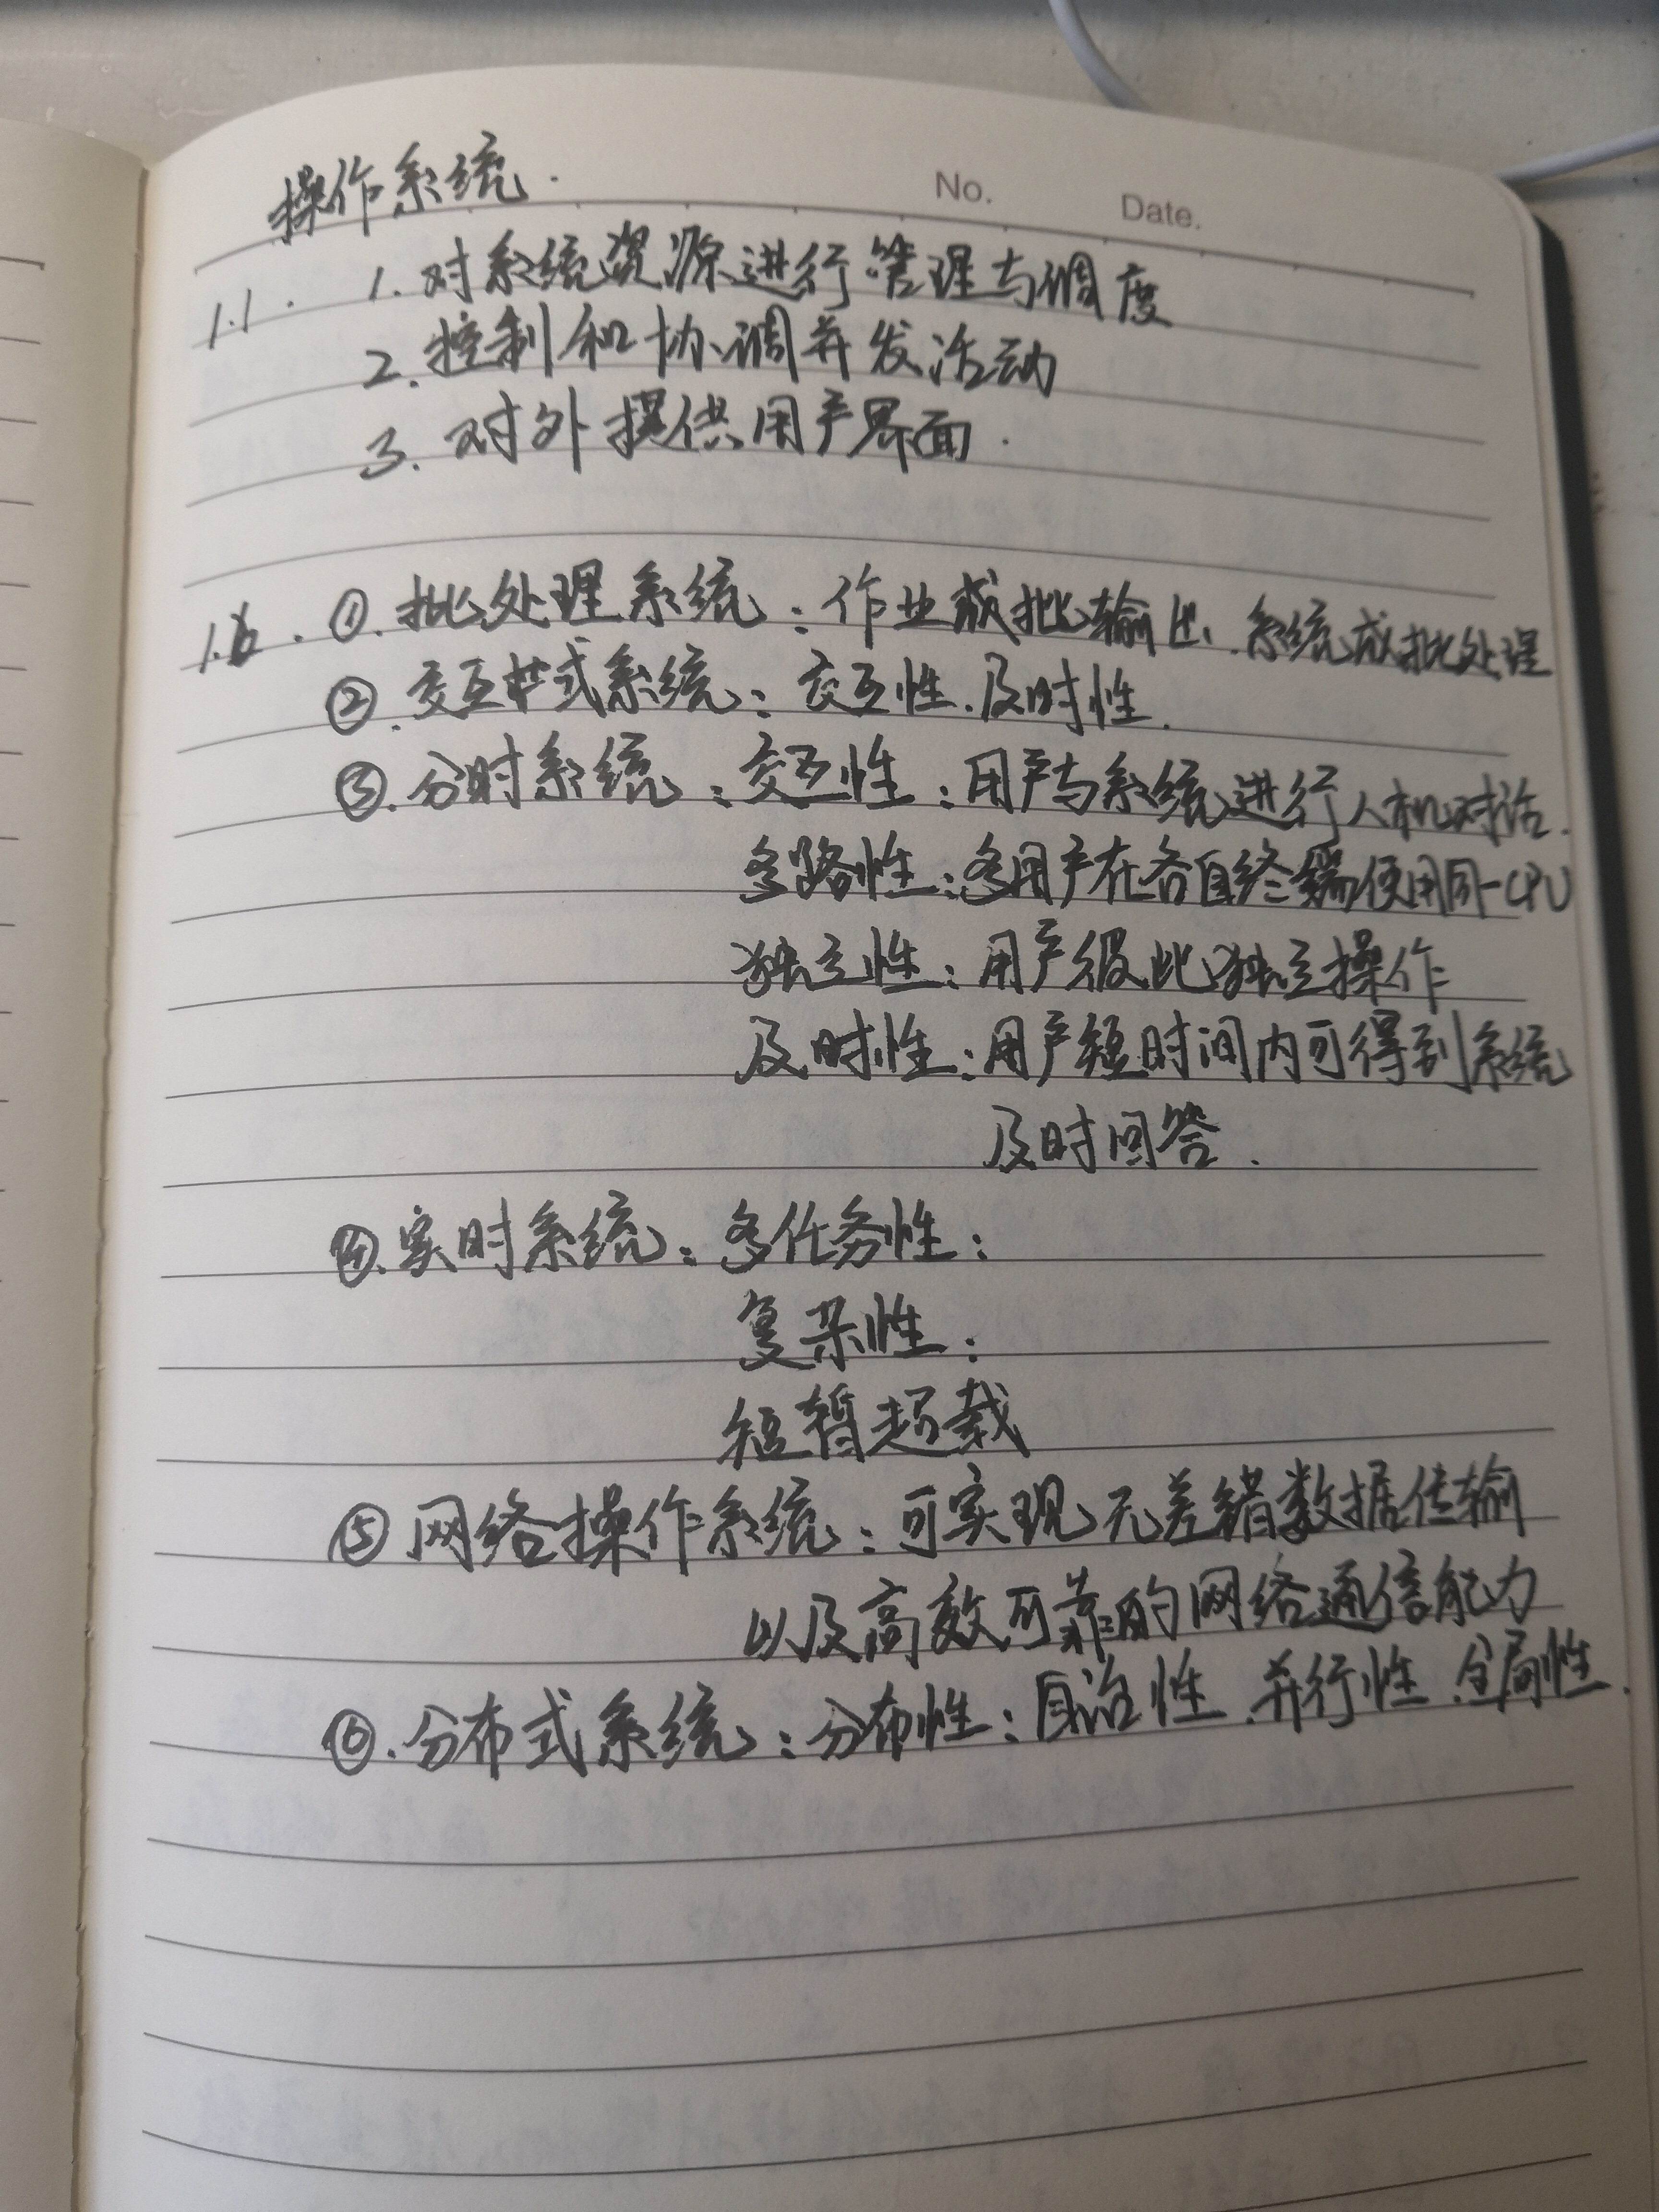 操作系统.
No. Date.
1.1. 1. 对系统资源进行管理与调度
2. 控制和协调并发活动
3. 对外提供用户界面.
1.6. ①. 批处理系统：作业成批输出、系统成批处理
②. 交互式系统：交互性.及时性.
③. 分时系统：交互性：用户与系统进行人机对话.
多路性：多用户在各自终端使用同一CPU
独立性：用户彼此独立操作
及时性：用户短时间内可得到系统
及时回答.
④. 实时系统：多任务性：
复杂性：
短暂超载
⑤ 网络操作系统：可实现无差错数据传输
以及高效可靠的网络通信能力
⑥. 分布式系统：分布性：自治性.并行性.全局性.